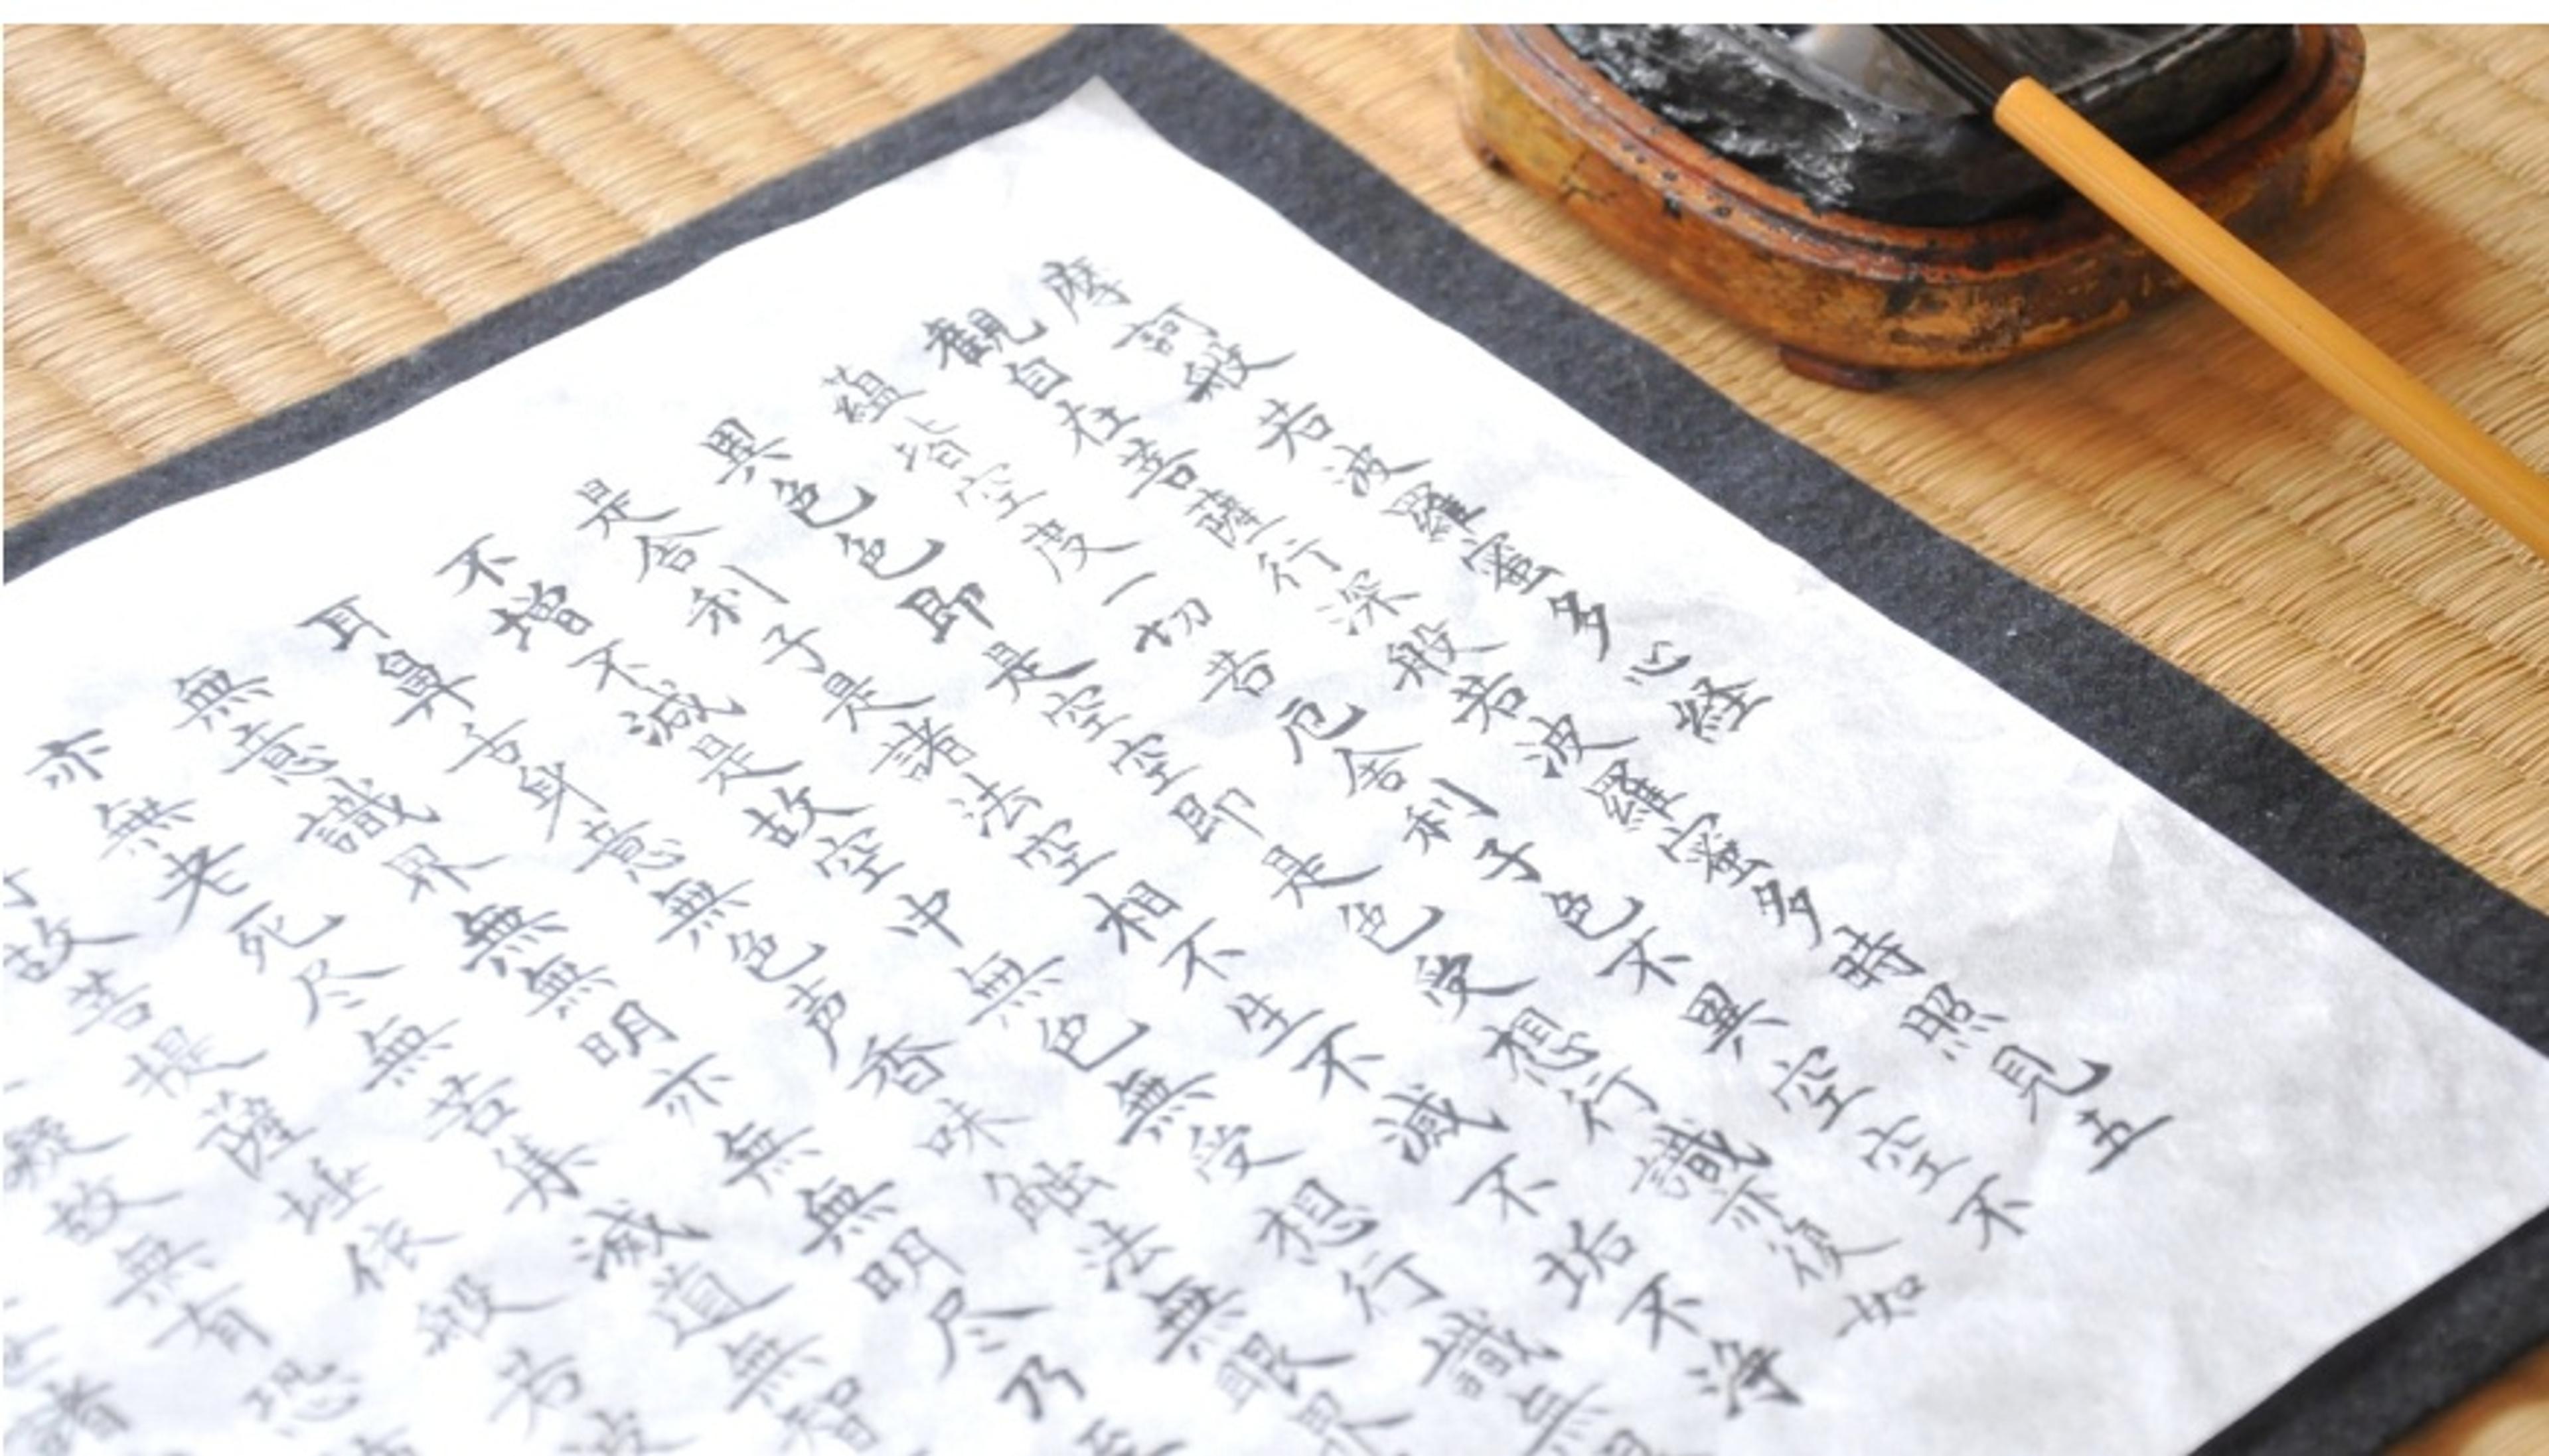 摩訶般若波羅蜜多心経
觀自在菩薩行深般若波羅蜜多時照見五
蘊皆空度一切苦厄舎利子色不異空空不
異色色即是空空即是色受想行識亦復如
是舎利子是諸法空相不生不滅不垢不浄
不増不減是故空中無色無受想行識無
耳鼻舌身意無色声香味触法無眼界
無意識界無無明亦無無明尽乃至
亦無老死尽無苦集滅道無智
故菩提薩埵依般若波
礙故無有恐
諸